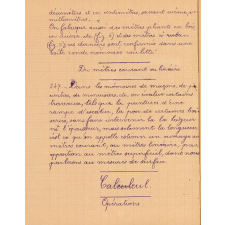 décamètres et en centimètres, parfois même en
millimètres.
On fabrique aussi des mètres pliants en bois
en cuivre, de (fig. 6) et des mètres à ruban
(fig. 7) ces derniers sont renfermés dans une
boîte ronde nommée roulette.
Du mètre courant ou linéaire
247. Dans les mémoires de maçons, de
peintres, de menuisiers, etc. on évalue certains
travaux, tels que la peinture d'une
rampe d'escalier, la pose de certains bois
sans faire intervenir la largeur
ni l'épaisseur, mais seulement la longueur
est ce qu'on appelle estimer un ouvrage au
mètre courant, ou mètre linéaire, par
opposition au mètre superficiel, dont nous
parlerons au mesures de surface.
Calcul.
Opérations